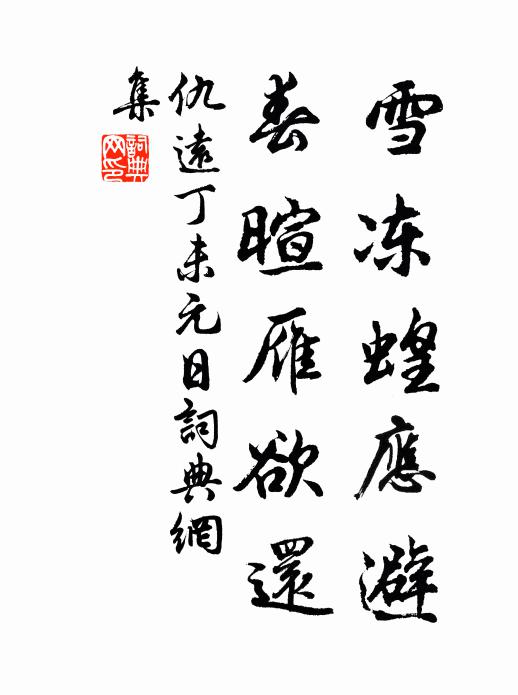 雪冻蝗應避
春暄雁欲還
仇遠丁未元日詞典網
集
詞典网印